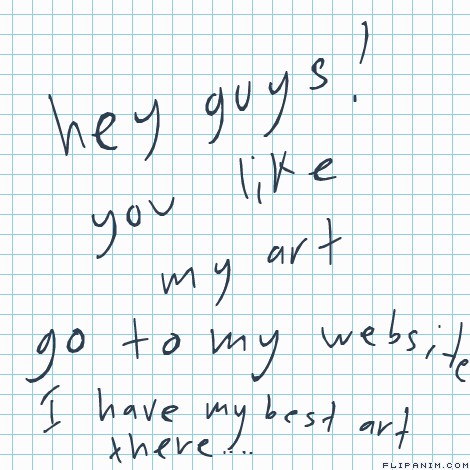 hey guys!
you like
my art
go to my website
I have my best art
there....
FLIPANIM.COM